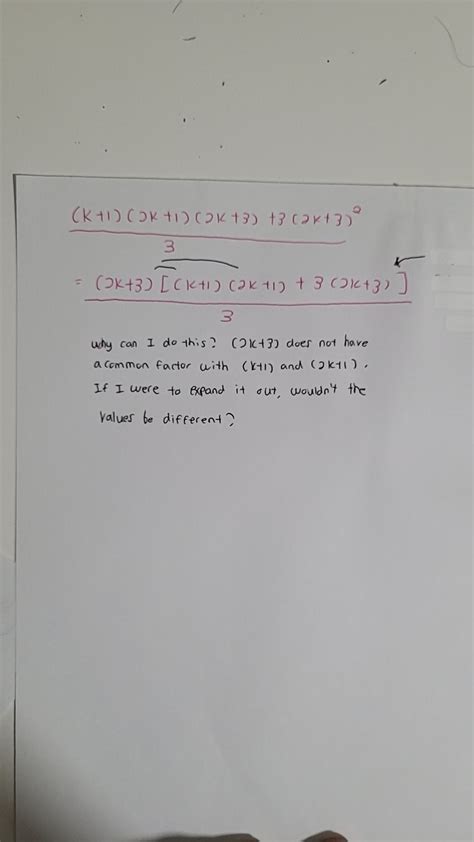 (k+1)(2k+1)(2k+3) +3(2k+3)²
3
= (2k+3) [(k+1) (2k+1) + 3 (2k+3)]
3
why can I do this? (2k+3) does not have
a common factor with (k+1) and (2k+1).
If I were to expand it out, wouldn't the
values be different?